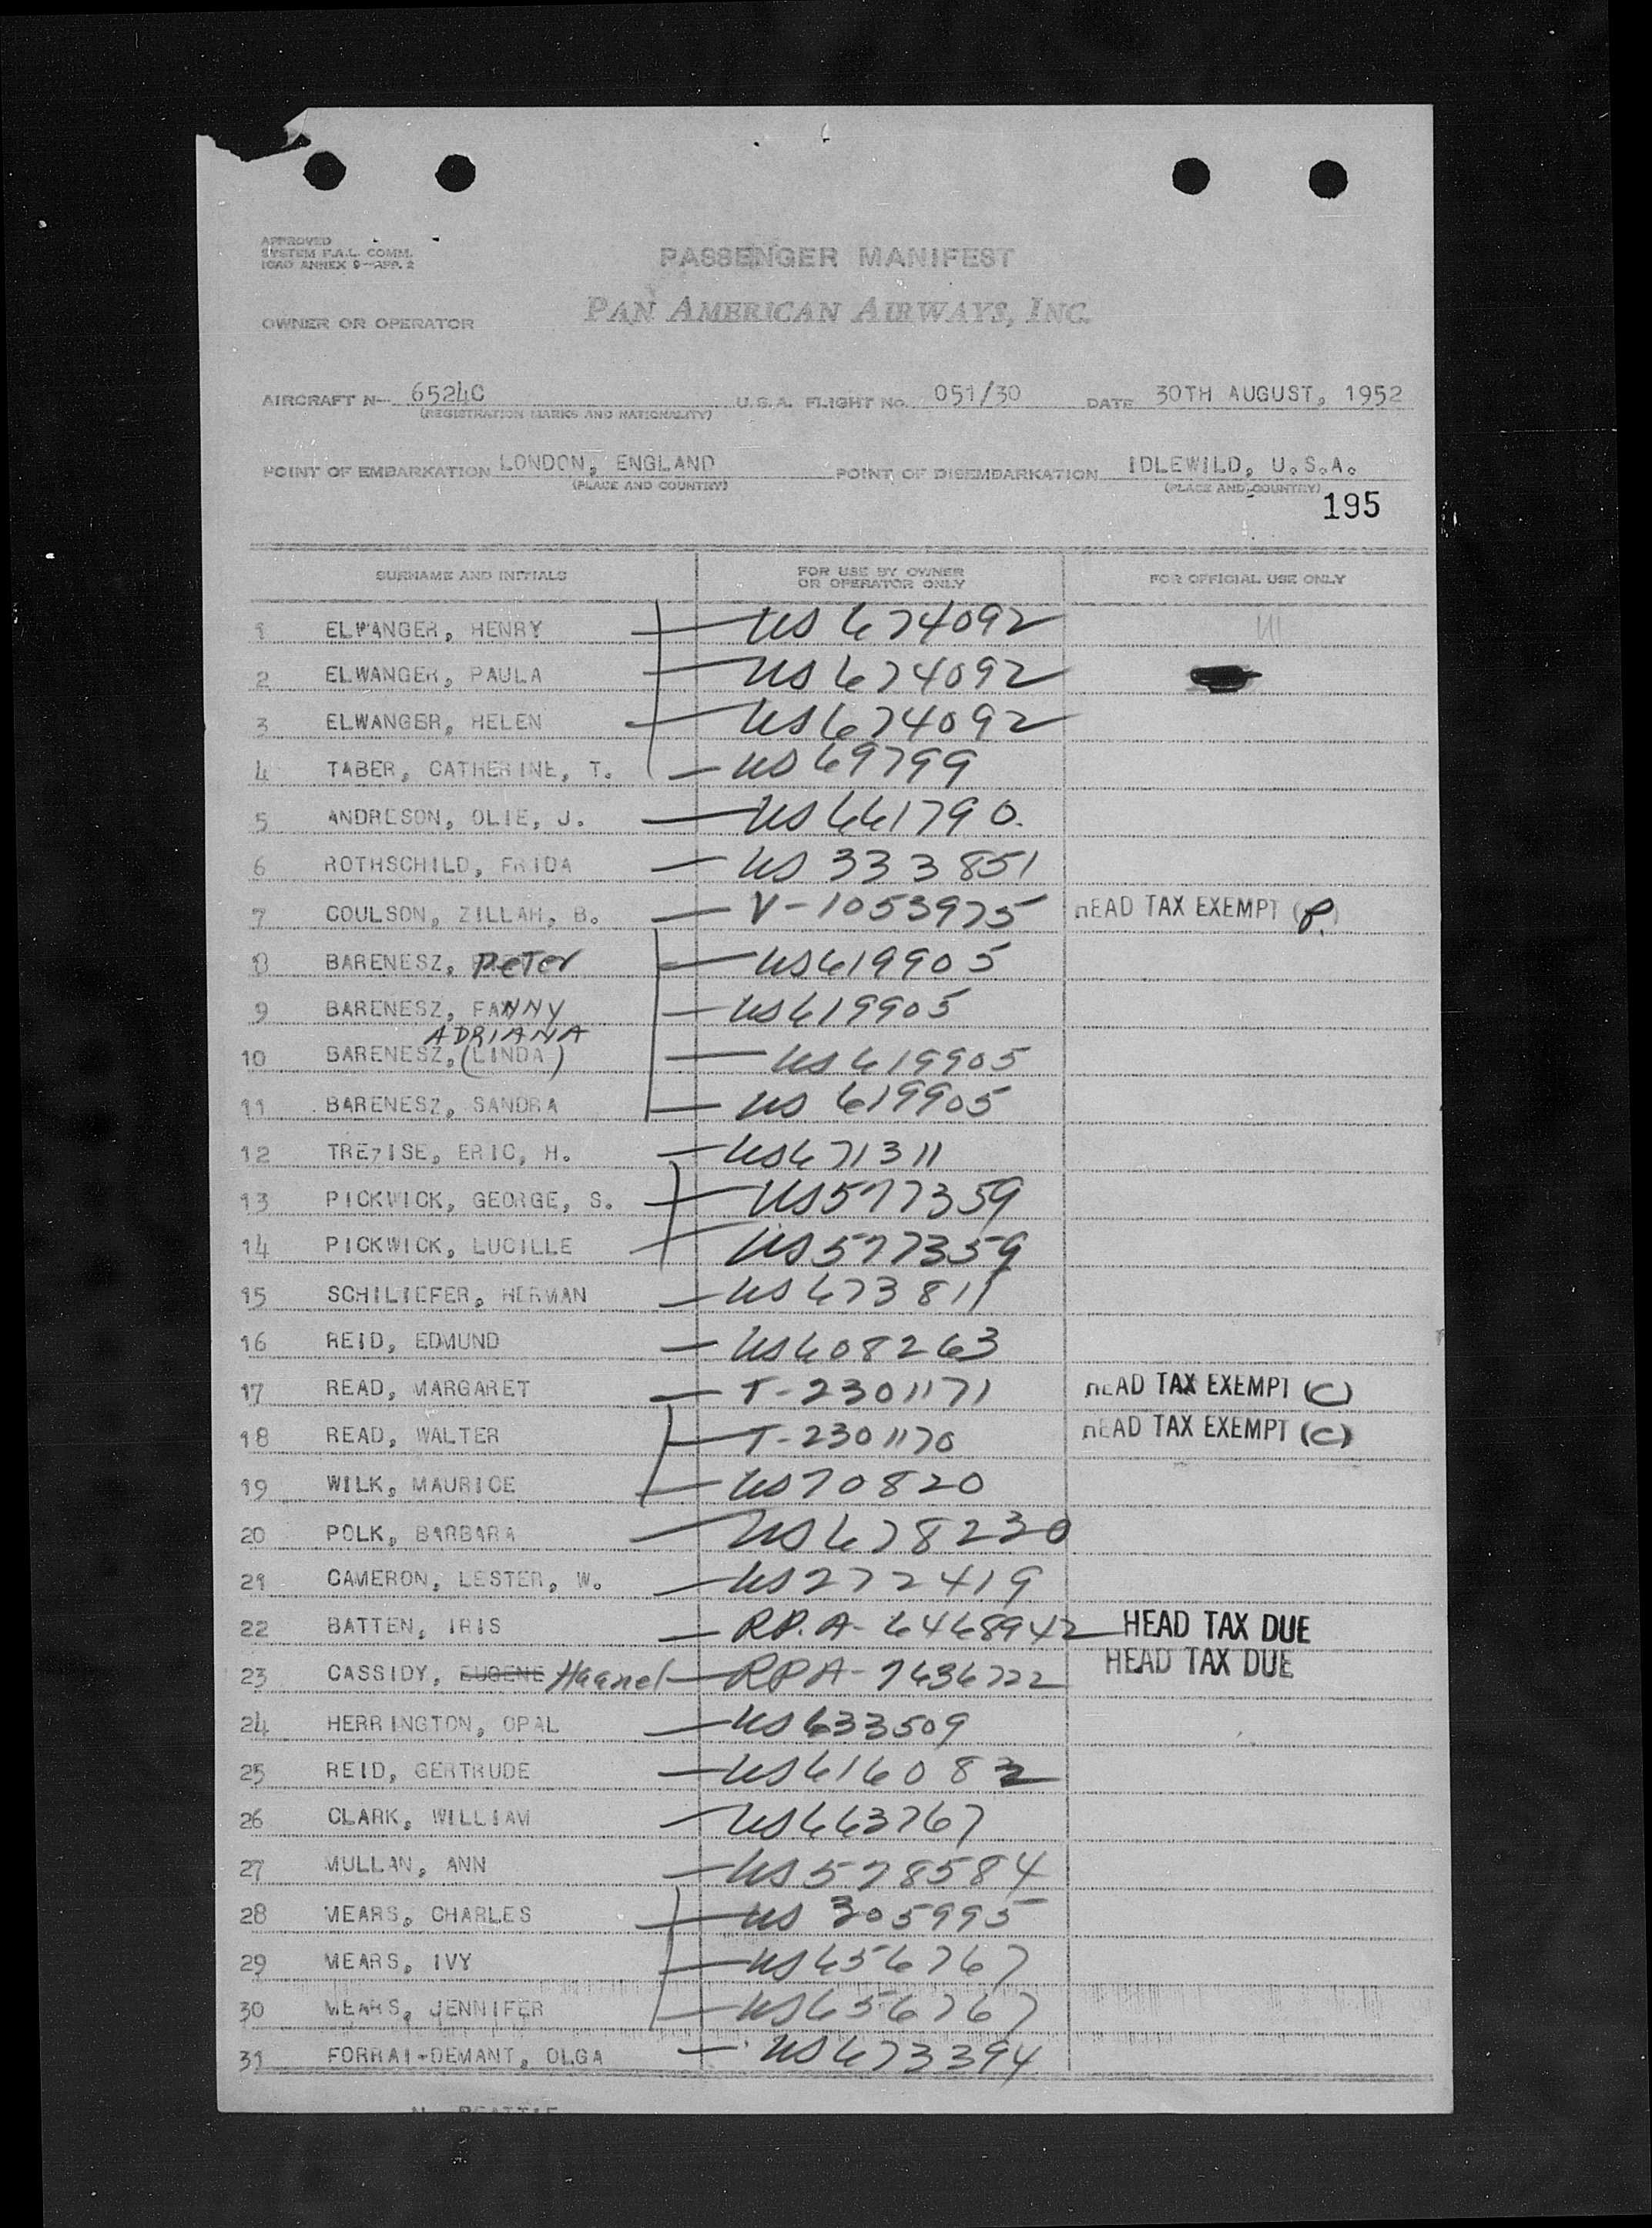 APPROVED
SYSTEM F.A.L. COMM.
ICAO ANNEX 9—APP. 2
PASSENGER MANIFEST
OWNER OR OPERATOR PAN AMERICAN AIRWAYS, INC.
AIRCRAFT N— 6524C U.S.A. FLIGHT No. 051/30 DATE 30TH AUGUST, 1952
(REGISTRATION MARKS AND NATIONALITY)
POINT OF EMBARKATION LONDON, ENGLAND POINT OF DISEMBARKATION IDLEWILD, U.S.A.
(PLACE AND COUNTRY) (PLACE AND COUNTRY)
195
SURNAME AND INITIALS FOR USE BY OWNER OR OPERATOR ONLY FOR OFFICIAL USE ONLY
1 ELWANGER, HENRY US 674092
2 ELWANGER, PAULA US 674092
3 ELWANGER, HELEN US 674092
4 TABER, CATHERINE, T. US 69799
5 ANDRESON, OLIE, J. US 661790.
6 ROTHSCHILD, FRIDA US 333851
7 COULSON, ZILLAH, B. V-1053975 HEAD TAX EXEMPT (P.)
8 BARENESZ, Peter US 619905
9 BARENESZ, FANNY US 619905
ADRIANA
10 BARENESZ, (LINDA) US 619905
11 BARENESZ, SANDRA US 619905
12 TREZISE, ERIC, H. US 671311
13 PICKWICK, GEORGE, S. US 577359
14 PICKWICK, LUCILLE US 577359
15 SCHILIEFER, HERMAN US 673811
16 REID, EDMUND US 608263
17 READ, MARGARET T-2301171 HEAD TAX EXEMPT (C)
18 READ, WALTER T-2301170 HEAD TAX EXEMPT (C)
19 WILK, MAURICE US 70820
20 POLK, BARBARA US 678230
21 CAMERON, LESTER, W. US 272419
22 BATTEN, IRIS RP.A-6468942 HEAD TAX DUE
23 CASSIDY, EUGENE Haanel RPA-7636722 HEAD TAX DUE
24 HERRINGTON, OPAL US 633509
25 REID, GERTRUDE US 616082
26 CLARK, WILLIAM US 663767
27 MULLAN, ANN US 578584
28 MEARS, CHARLES US 305995
29 MEARS, IVY US 656767
30 MEARS, JENNIFER US 656767
31 FORRAI-DEMANT, OLGA US 673394